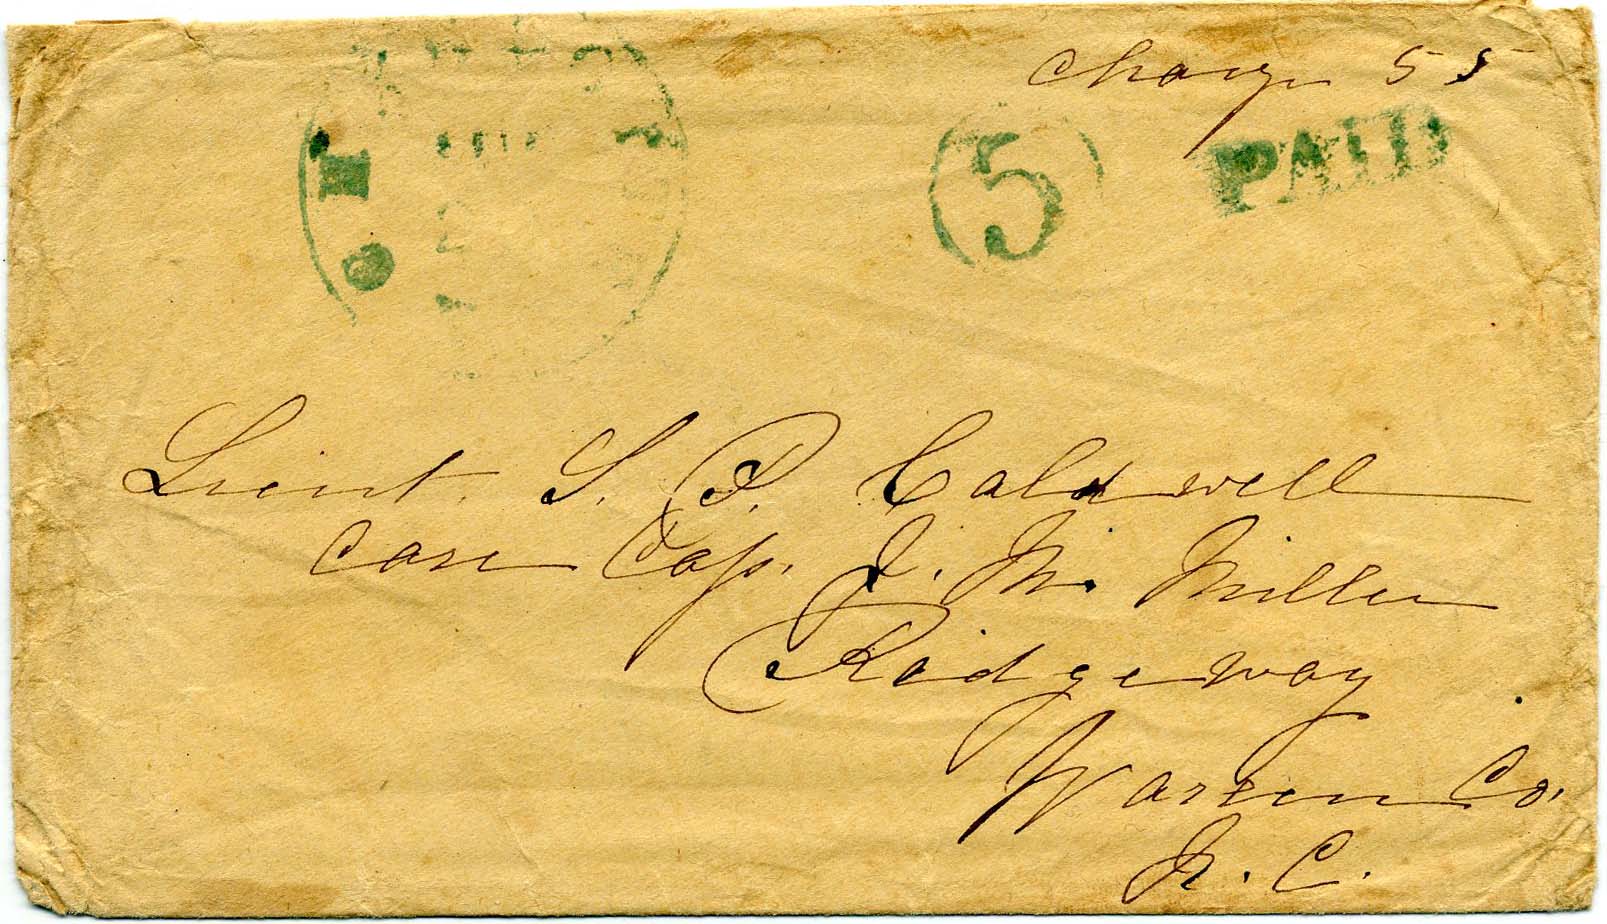 Charge 55
5
PAID
Lieut. S. P. Caldwell
Care Cap. J. M. Miller
Ridgeway
Warren Co.
N. C.